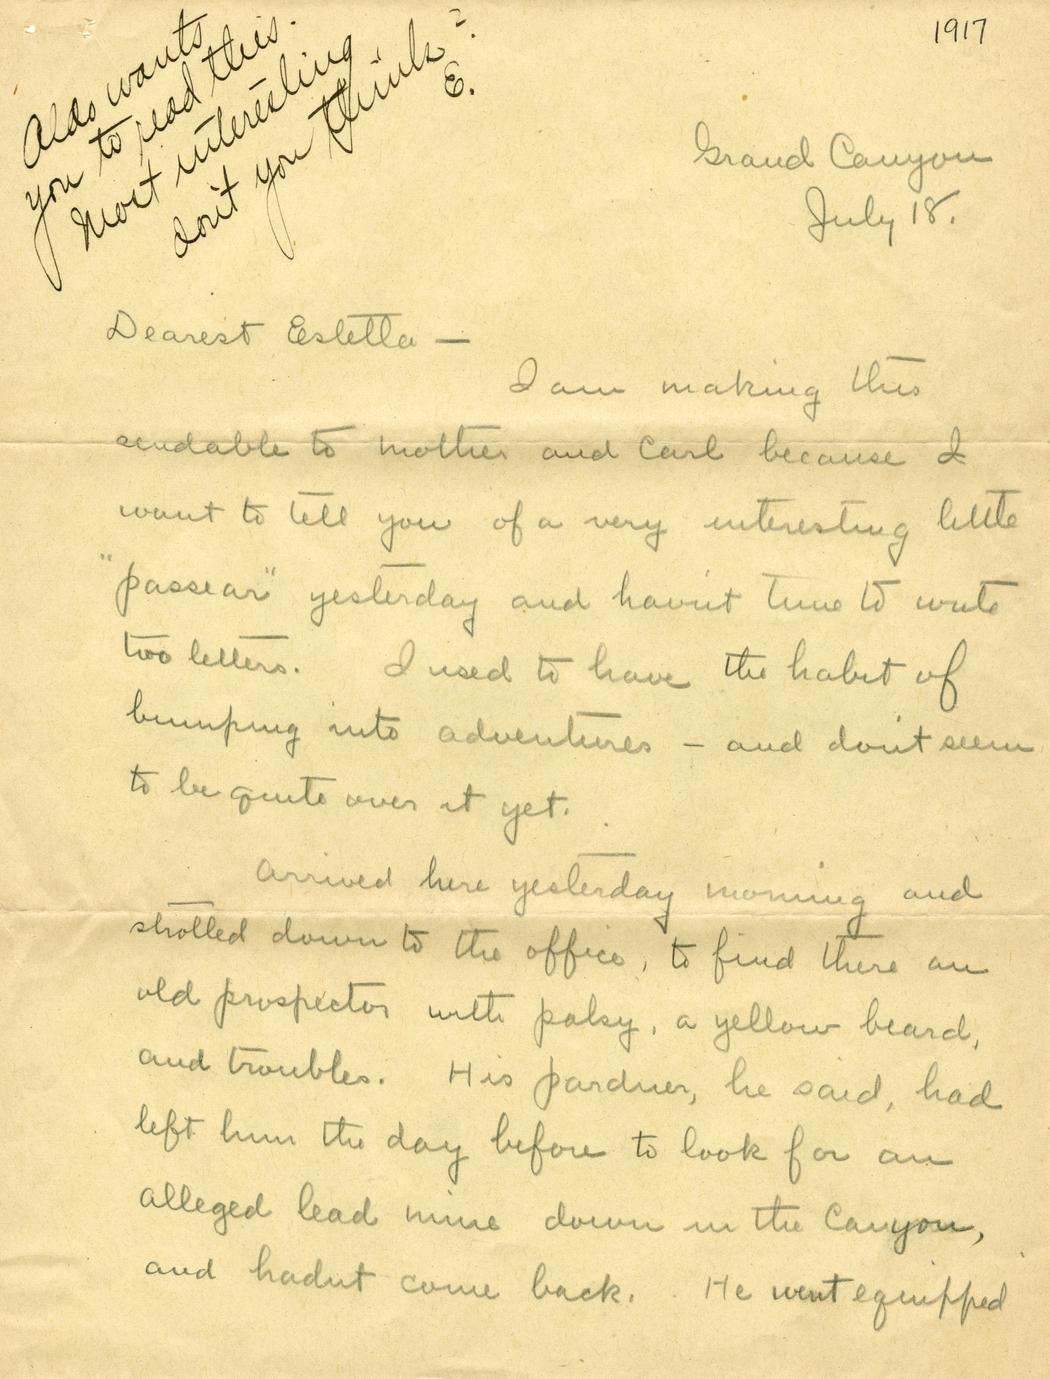 Aldo wants
you to read this.
Most interesting
don't you think?
E.
1917
Grand Canyon
July 18.
Dearest Estella —
I am making this
sendable to mother and Carl because I
want to tell you of a very interesting little
"passear" yesterday and hav'nt time to write
two letters. I used to have the habit of
bumping into adventures – and don't seem
to be quite over it yet.
Arrived here yesterday morning and
strolled down to the office, to find there an
old prospector with palsy, a yellow beard,
and troubles. His pardner, he said, had
left him the day before to look for an
alleged lead mine down in the Canyon,
and hadnt come back. He went equipped